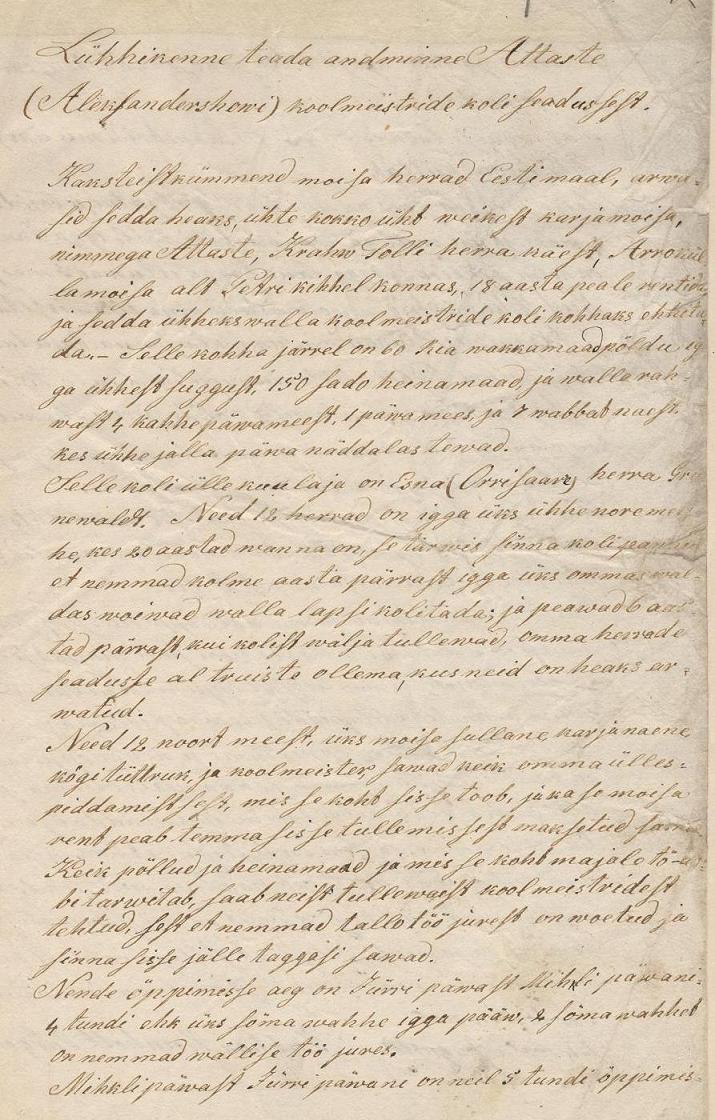 Lühhikenne teada andminne Attaste
(Aleksandershowi) koolmeistride koli seadussest.
Kaksteistkümmend moisa herrad Eestimaal, arwa-
sid sedda heaks, ühte kokko üht weikest karjamoisa,
nimmega Attaste, Krahw Tolli herra käest, Arrokül
la moisa alt Petri kihhelkonnas, 18 aasta peale rentida
ja sedda ühhekswalla koolmeistride koli kohhaks ehhita-
da.- Selle kohha järrel on 60 Riia wakkamaad põldu ig
ga ühhest suggust, 150 sado heinamaad, ja wallarah-
wast 4 kahhepäwameest, 1 päwamees, ja 7 wabbat naest,
kes ühhe jalla päwa näddalas tewad.
Selle koli ülle kuulaja on Esna (Orrisaare) herra Gru
newaldt. Need 12 herrad on igga üks ühhe nore mees
he, kes 20 aastad wanna on, se tarwis sinna koli pannud
et nemmad kolme aasta pärrast igga üks ommas wal-
das woiwad walla lapsi kolitada; ja peawad 6 aas-
tad pärrast, kui kolist wälja tullewad, omma herrade
seadusse al truiste ollema, kus neid on heaks ar-
watud.
Need 12 noort meest, üks moisa sullane, karjanaene,
kögitüttruk, ja koolmeister sawad keik omma ülles-
piddamist sest, mis se koht sisse toob, ja ka se moisa
rent peab temma sissetullemissest maksetud sama
Keik põllud ja heinamaad ja mis se koht majale tö-
bi tarwitab, saab neist tullewaist koolmeistridest
tehtud, sest et nemmad tallo töö jurest on woetud ja
sinna sisse jälle taggasi sawad.
Nende öppimisse aeg on Jürri päwast Mihkli päwani.
4 tundi ehk üks söma wahhe igga pääw, 2 söma wahhet
on nemmad wällise töö jures.
Mihklipäwast Jürri päwani on neil 5 tundi öppimis-